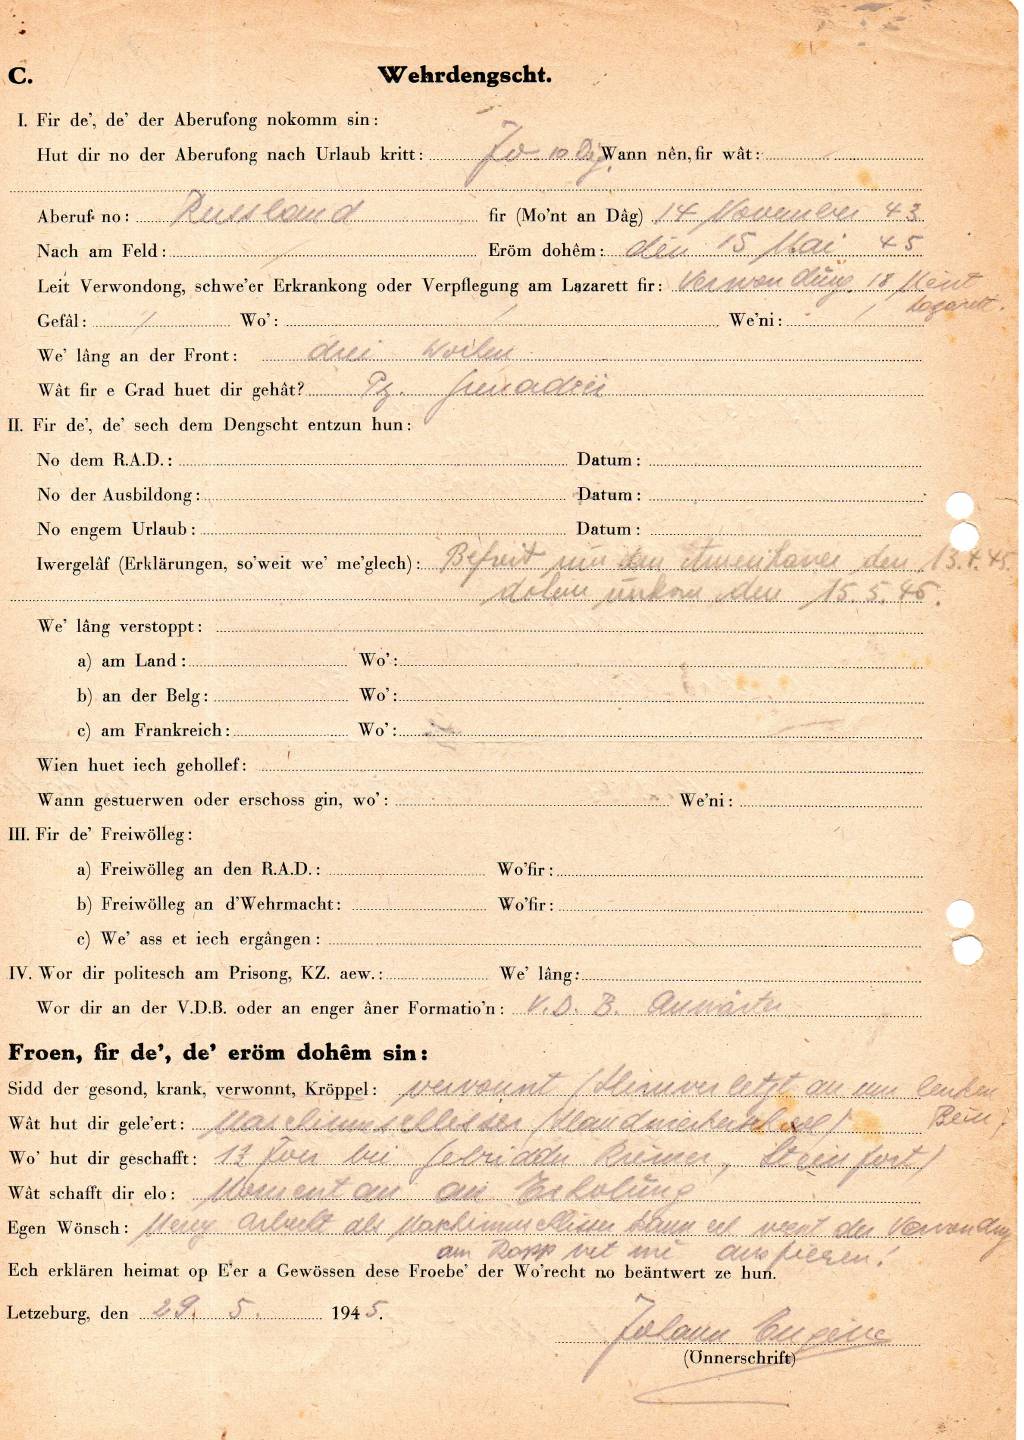 C. Wehrdengscht.
I. Fir de', de' der Aberufong nokomm sin:
Hut dir no der Aberufong nach Urlaub kritt: Jo 10 Dåg. Wann nên, fir wât:
Aberuf no: Russland fir (Mo'nt an Dâg) 14 November 43
Nach am Feld: Eröm dohêm: den 15 Mai 45
Leit Verwondong, schwe'er Erkrankong oder Verpflegung am Lazarett fir: Verwondung, 18 Mént
Lazarett.
Gefâl: / Wo': / We'ni: /
We' lâng an der Front: drei wochen
Wât fir e Grad huet dir gehât? Pz. Grenadéer
II. Fir de', de' sech dem Dengscht entzun hun:
No dem R.A.D.: Datum:
No der Ausbildong: Datum:
No engem Urlaub: Datum:
Iwergelâf (Erklärungen, so'weit we' me'glech): Befreit vun den Amerikaner den 13.4.45.
dohem unkom den 15.5.45.
We' lâng verstoppt:
a) am Land: Wo':
b) an der Belg: Wo':
c) am Frankreich: Wo':
Wien huet iech gehollef:
Wann gestuerwen oder erschoss gin, wo': We'ni:
III. Fir de' Freiwölleg:
a) Freiwölleg an den R.A.D.: Wo'fir:
b) Freiwölleg an d'Wehrmacht: Wo'fir:
c) We' ass et iech ergângen:
IV. Wor dir politesch am Prisong, KZ. aew.: We' lâng:
Wor dir an der V.D.B. oder an enger âner Formatio'n: V.D.B. Anwärter
Froen, fir de', de' eröm dohêm sin:
Sidd der gesond, krank, verwonnt, Kröppel: verwonnt (Hirnverletzt an um lenken
Bein)
Wât hut dir gele'ert: Maschinnschlässer (Handwierkerschoul)
Wo' hut dir geschafft: 1½ Joer bei Gebridder Rümer, Steinfort)
Wât schafft dir elo: Moment an an Erholung
Egen Wönsch: Meng Arbecht als Maschinnschlässer kann ech wégent der Verwondung
am Kapp net mé ausfieren!
Ech erklären heimat op E'er a Gewössen dese Froebe' der Wo'recht no beäntwert ze hun.
Letzeburg, den 29. 5. 1945.
Johann Eugène
(Önnerschrift)